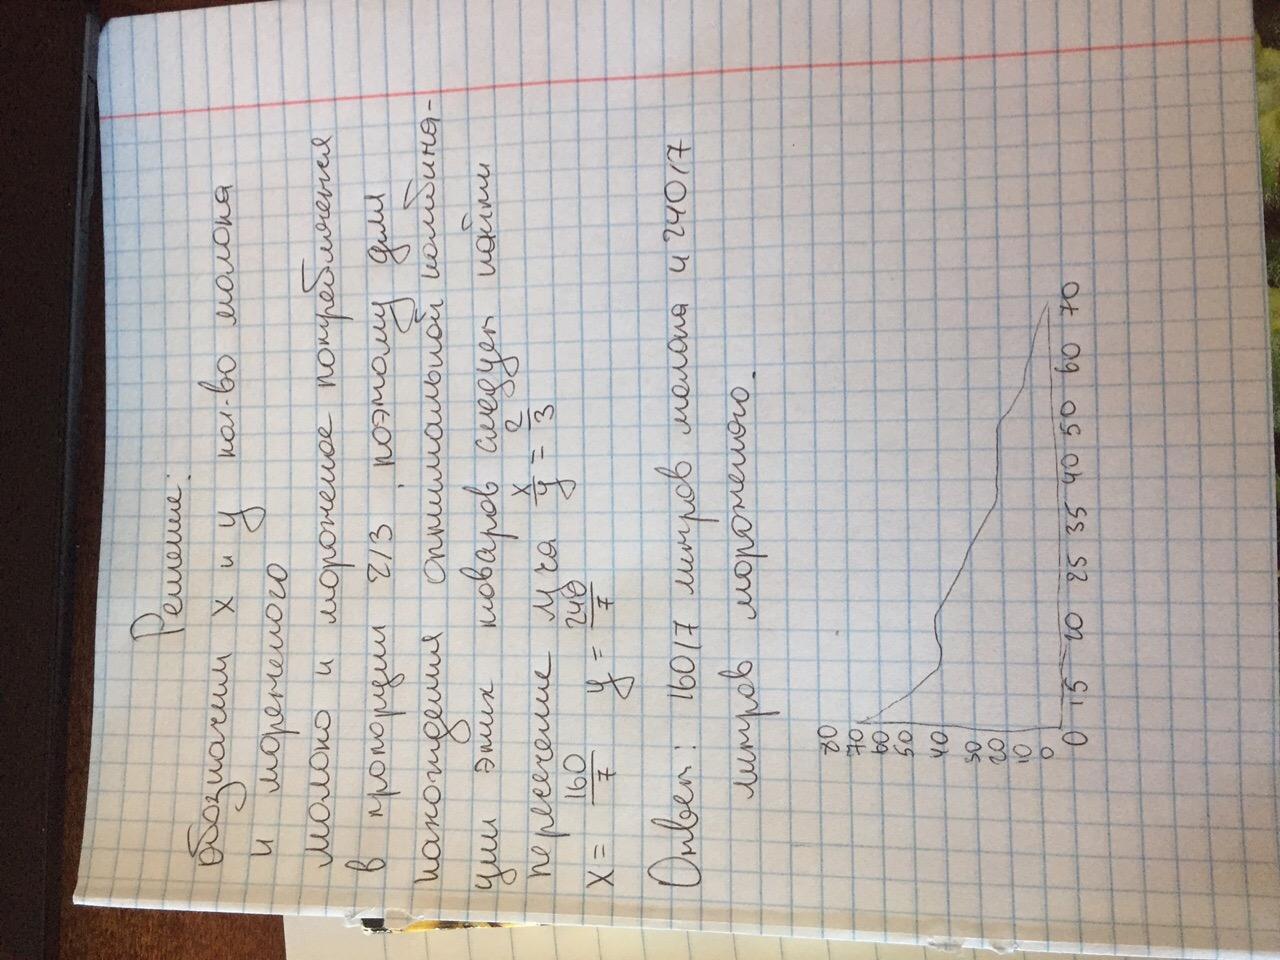 Решение:
Обозначим x и y кол-во молока
и мороженого
молоко и мороженое потребляемся
в пропорции 2/3 поэтому для
нахождения оптимальной комбина-
ции этих товаров следует найти
пересечение x/y = 2/3
x = 160/7 y = 240/7
Ответ: 160/7 литров молока и 240/7
литров мороженого.
80
70
60
50
40
30
20
10
0
0 15 20 25 35 40 50 60 70